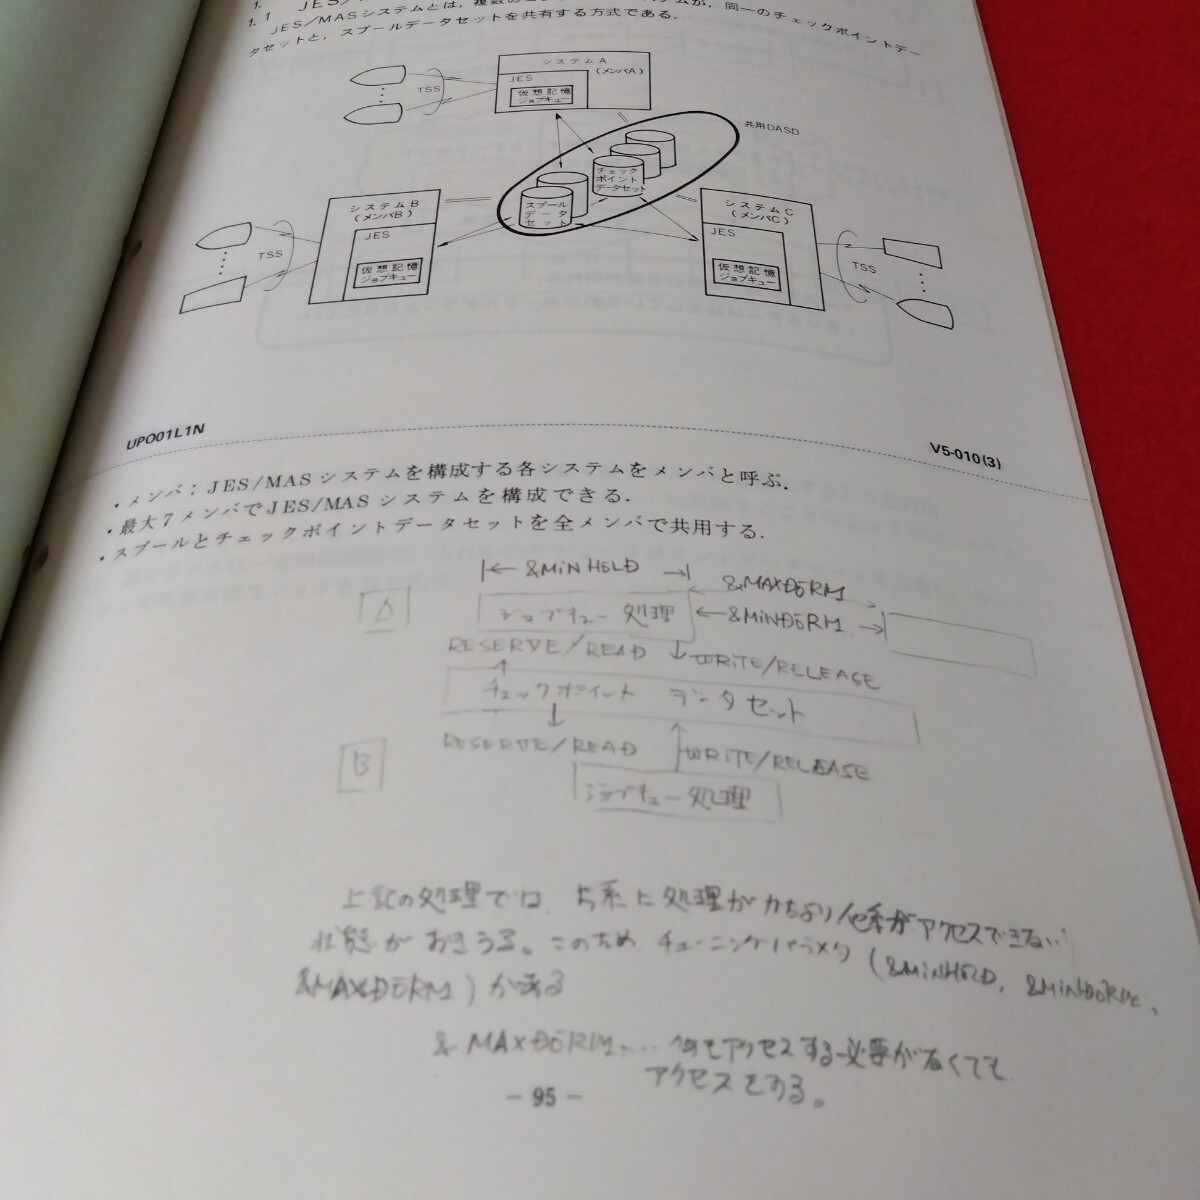 1.
1.1 JES/
JES/MASシステムとは，複数の
が，同一のチェックポイントデー
タセットと，スプールデータセットを共有する方式である．
システムA
(メンバA)
JES
仮想記憶
ジョブキュー
TSS
共用DASD
チェック
ポイント
データセット
スプール
データ
セット
システムB
(メンバB)
JES
仮想記憶
ジョブキュー
TSS
システムC
(メンバC)
JES
仮想記憶
ジョブキュー
TSS
UPO01L1N
V5-010(3)
・メンバ；JES/MASシステムを構成する各システムをメンバと呼ぶ．
・最大7メンバでJES/MASシステムを構成できる．
・スプールとチェックポイントデータセットを全メンバで共用する．
&MINHOLD
&MAXDORM
A
ジョブキュー処理
&MINDORM
RESERVE/READ
WRITE/RELEASE
チェックポイント データセット
RESERVE/READ
WRITE/RELEASE
B
ジョブキュー処理
上記の処理では、 系に処理がかたより他系がアクセスできない
状態がおきうる。このため チューニングパラメタ (&MINHOLD, &MINDORM,
&MAXDORM)がある
&MAXDORM... 何もアクセスする必要がなくても
アクセスをする。
- 95 -